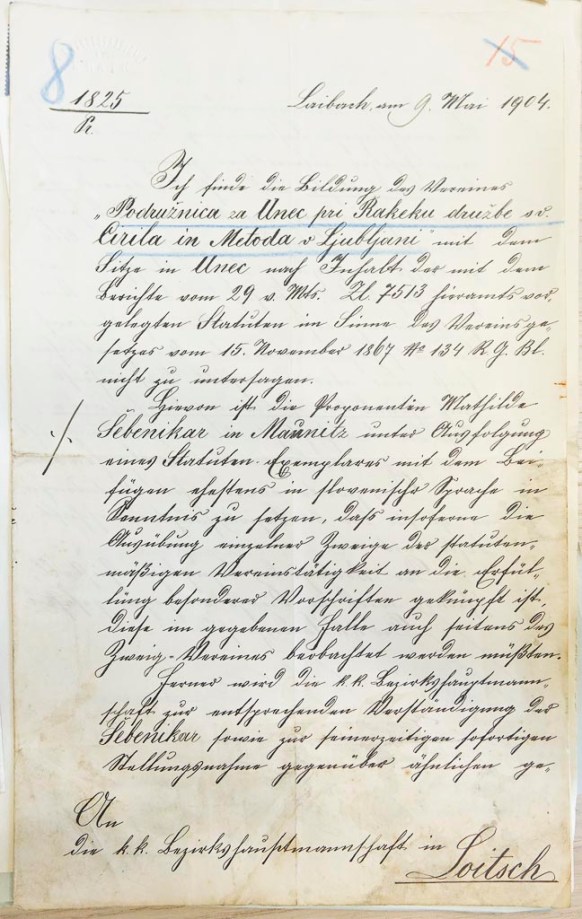 8
15
1825
Pr.
Laibach, am 9. Mai 1904.
Ich finde die Bildung des Vereines
„Podružnica za Unec pri Rakeku družbe sv.
Cirila in Metoda v Ljubljani" mit dem
Sitze in Unec nach Inhalt der mit dem
Berichte vom 29 v. Mts. Zl. 7513 hieramts vor-
gelegten Statuten im Sinne des Vereinsge-
setzes vom 15. November 1867 No 134 R. G. Bl.
nicht zu untersagen.
Hievon ist die Proponentin Mathilde
Šebenikar in Maunitz unter Ausfolgung
eines Statuten-Exemplares mit dem Bei-
fügen ehestens in slovenischer Sprache in
Kenntnis zu setzen, dass insoferne die
Ausübung einzelner Zweige der statuten-
mäßigen Vereinstätigkeit an die Erfül-
lung besonderer Vorschriften geknüpft ist,
diese im gegebenen Falle auch seitens des
Zweig-Vereines beobachtet werden müßten.
Ferner wird die k. k. Bezirkshauptmann-
schaft zur entsprechenden Verständigung der
Šebenikar sowie zur seinerzeitigen sofortigen
Stellungnahme gegenüber ähnlichen ge-
An
die k. k. Bezirkshauptmannschaft in
Loitsch